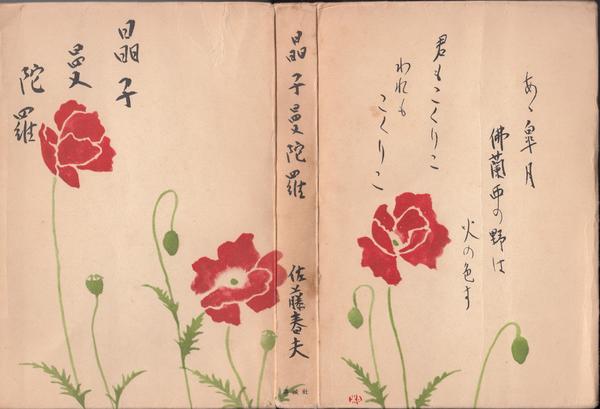 晶子
曼
陀羅
晶子曼陀羅
佐藤春夫
あゝ皐月
佛蘭西の野は
火の色す
君もこくりこ
われも
こくりこ